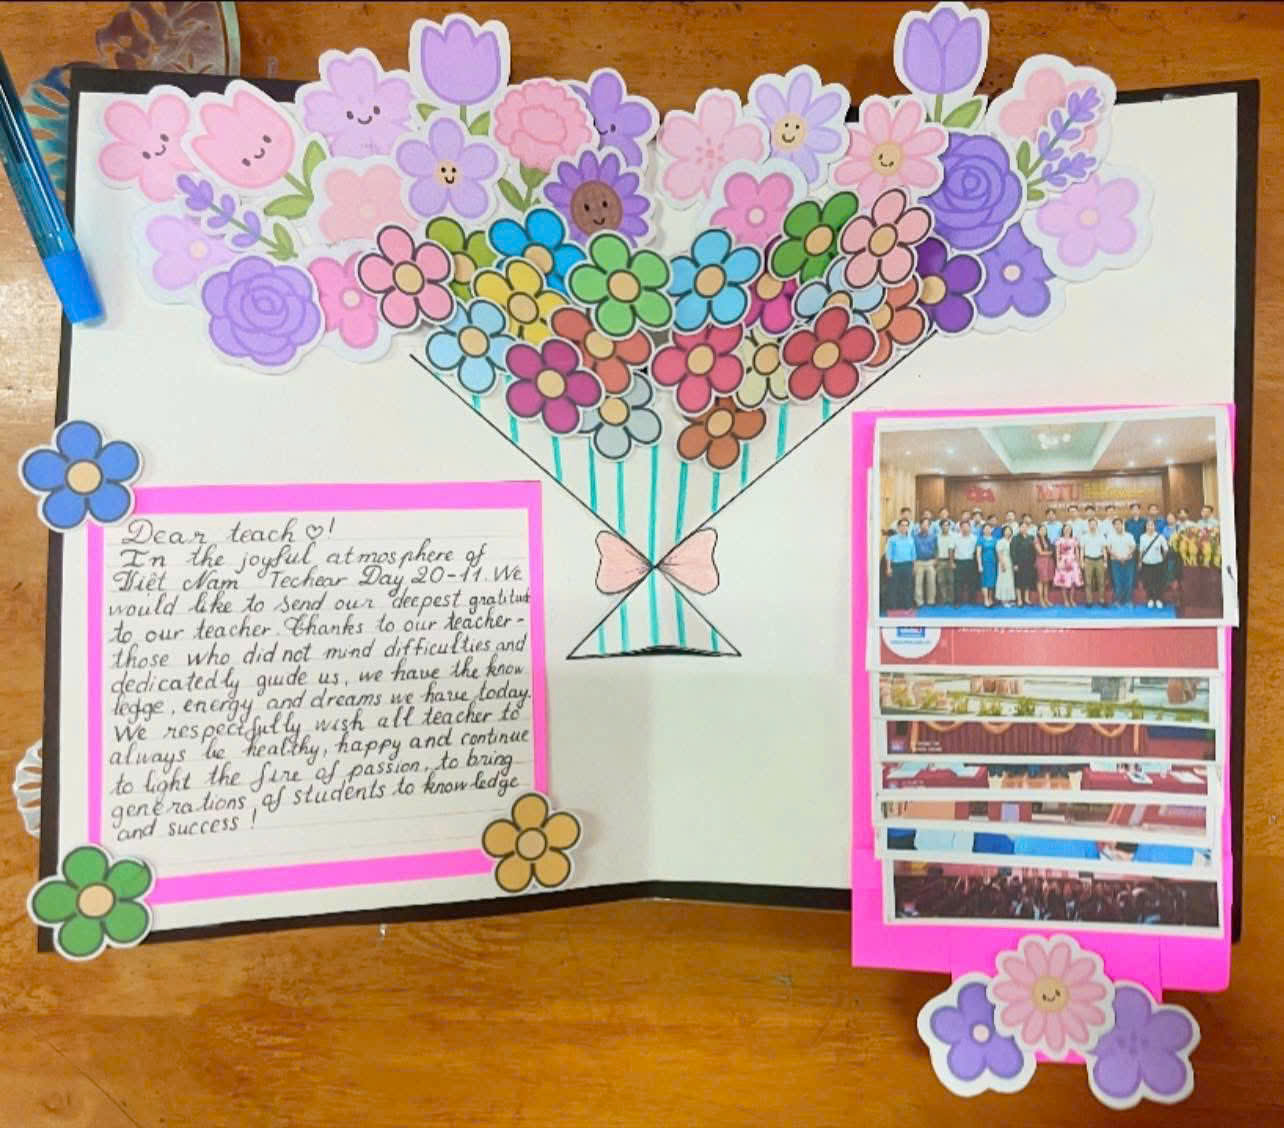 Dear teach ♡!
In the joyful atmosphere of
Việt Nam Techear Day 20-11. We
would like to send our deepest gratitude
to our teacher. Thanks to our teacher-
those who did not mind difficulties and
dedicatedly guide us, we have the know
ledge, energy and dreams we have today.
We respectfully wish all teacher to
always be healthy, happy and continue
to light the fire of passion, to bring
generations of students to knowledge
and success!
MTU